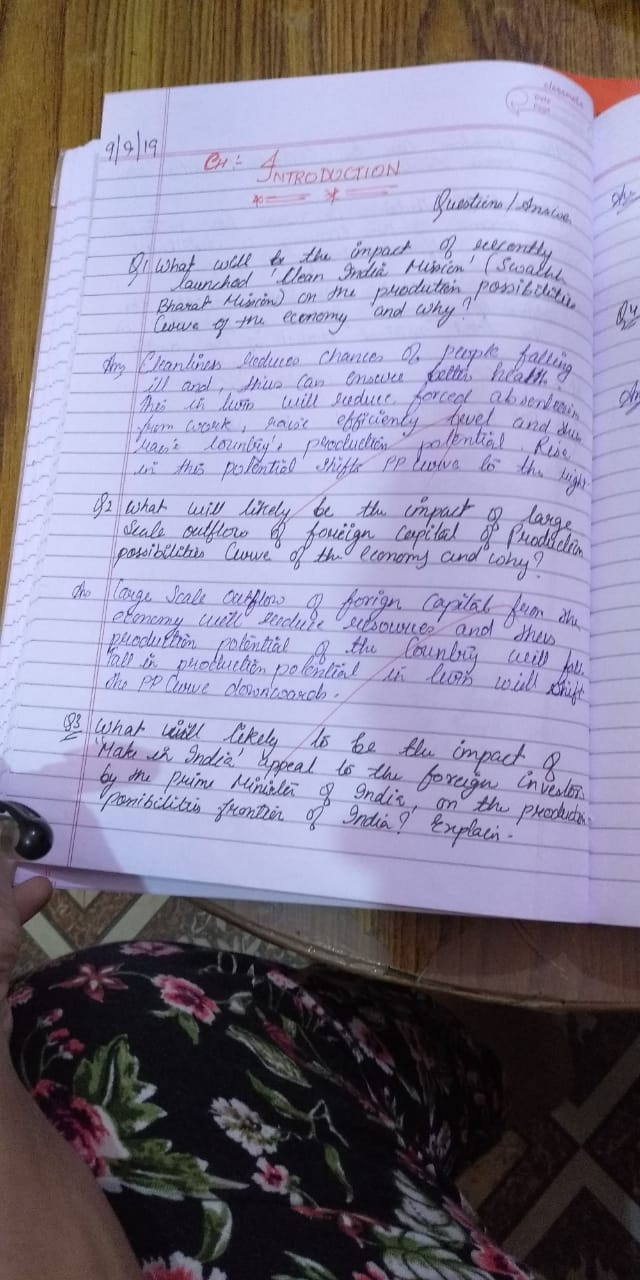 classmate
Date
Page
9/9/19
CH:- 1
INTRODUCTION
Questions/Answer
Q1 What will be the impact of recently
launched 'Clean India Mission' (Swachh
Bharat Mission) on the production possibilities
Curve of the economy and why?
Ans Cleanliness reduces chances of people falling
ill and, thus can ensure better health.
This in turn will reduce forced absenteeism
from work, raise efficiency level and thus
raise country's production potential. Rise
in this potential shifts PP Curve to the right.
Q2 What will likely be the impact of large
Scale outflow of foreign capital of Production
possibilities Curve of the economy and why?
Ans Large Scale outflow of forign capital from the
economy will reduce resources and thus
production potential of the Country will fall.
Fall in production potential in turn will shift
the PP Curve downwards.
Q3 What will likely to be the impact of
'Make in India' appeal to the foreign investors
by the Prime Minister of India, on the production
possibilities frontier of India? Explain.
Q4